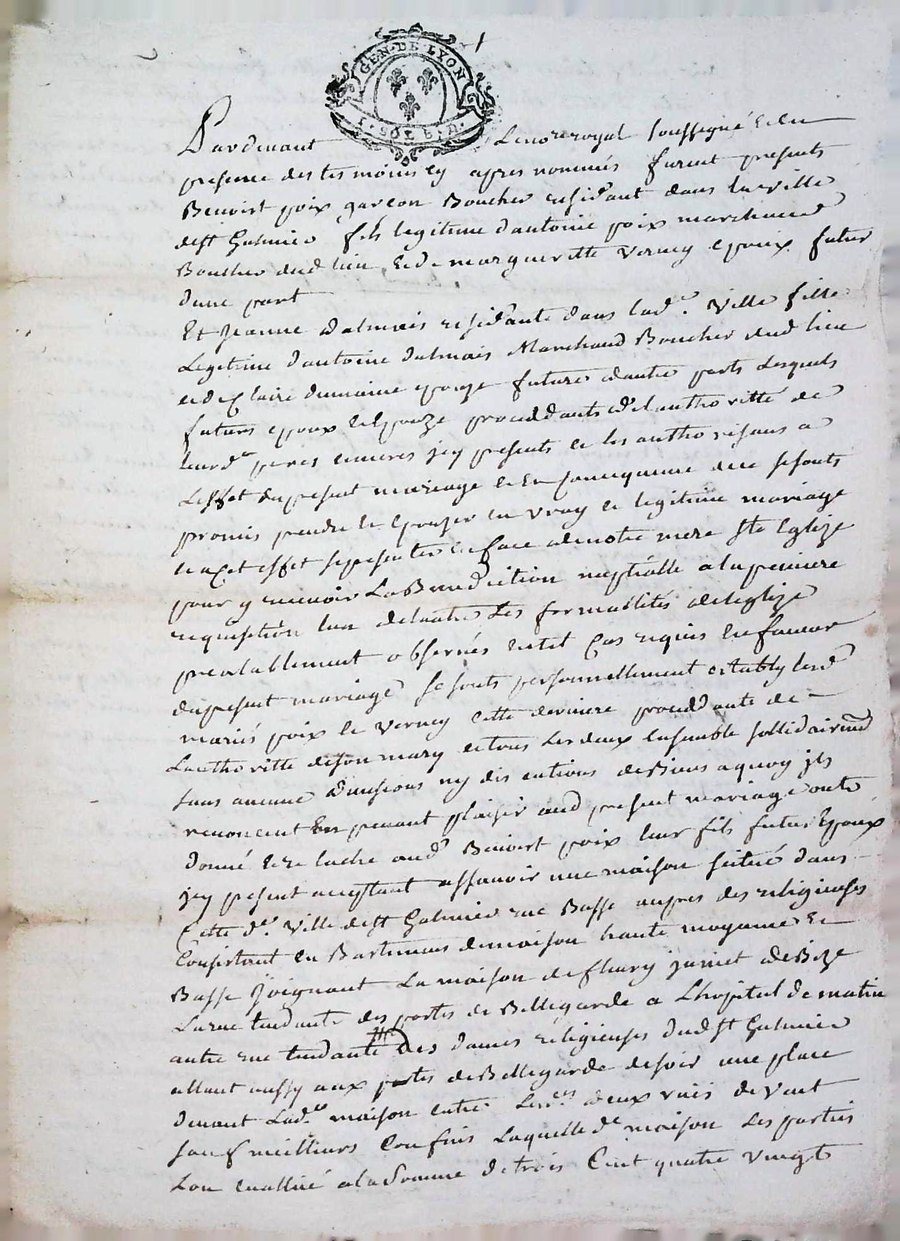 GEN. DE LYON
1. SOL 6. D.
Pardevant Le no.re royal soussigné et en
presence des tesmoins cy apres nommés furent presents
Benoist poix garcon Boucher residant dans la ville
de st Galmier fils legitime d'antoine poix marchand
Boucher dud lieu, et de margueritte Verney epoux futur
dune part
Et Jeanne dalmais residante dans lad.e Ville fille
Legitime d'antoine dalmais Marchand Boucher dud lieu
et de Claire dumaine epouze future d'autre part Lesquels
futurs epoux et epouze proceddants de l'authoritté de
leurd.s peres et meres jcy presents et les authorisans a
L'effet du present mariage
promis prendre et Epouzer en vray et legitime mariage
et a cet effet se presenter en face de notre mere Ste Eglize
pour y recevoir La Benediction nuptialle a la premiere
requisition l'un de l'autre Les formalités de leglize
prealablement observées en tel cas requis En faveur
du present mariage se sont personnellement estably lesd.
mariés poix et Verney cette derniere proceddante de
Lauthoritte de son mary et tous Les deux Ensemble sollidairem.t
sans aucune Divisions ny discutions de Biens a quoy jls
renoncent En prenant plaisir aud present mariage ont
donné et relaché aud. Benoist poix leur fils futur Epoux
jcy present acceptant assavoir une maison scitué dans
Cette d.e Ville de st Galmier rue Basse aupres des religieuses
Consistant en Bastimens de maison haute moyenne et
Basse Joignant La maison de fleury de Bize
La rue tendante des portes de Bellegarde a L'hopital de matin
autre rue tendante des dames religieuses dud st Galmier
allant aussy aux portes de Bellegarde de soir une place
devant Lad.e maison entre Les deux rues de vent
sauf meilleurs Confins Laquelle d.e maison Les parties
Lon evallué a la somme de trois Cent quatre vingts